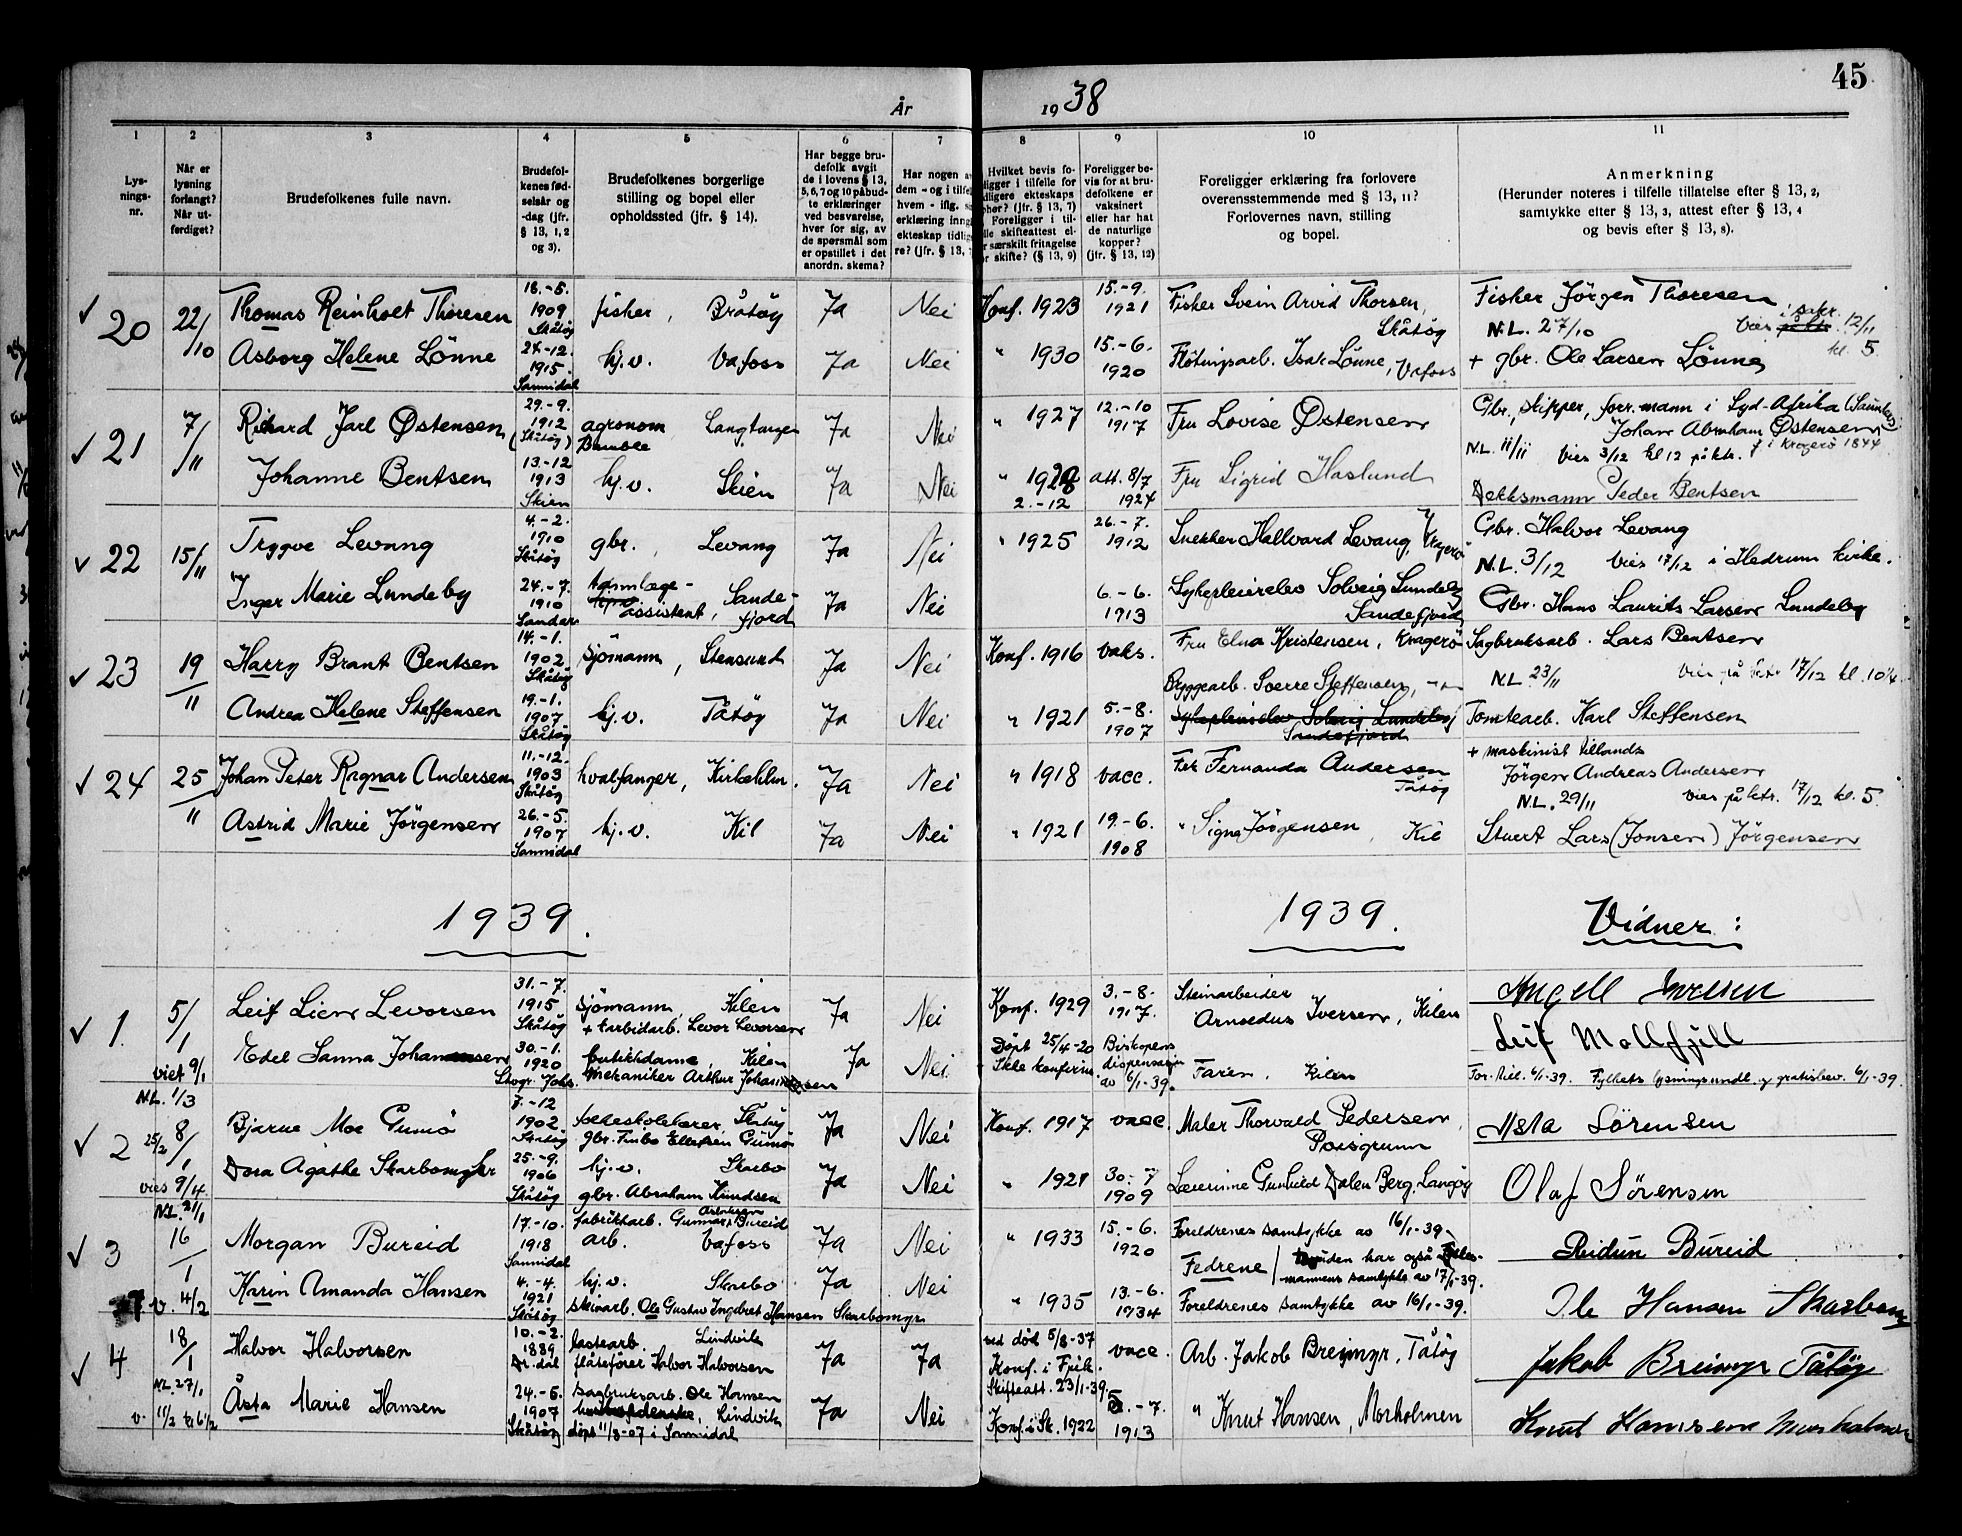 45
År 1938
1 2 3 4 5 6 7 8 9 10 11
Lys-
nings-
nr.
Når er
lysning
forlangt?
Når ut-
ferdiget?
Brudefolkenes fulle navn.
Brudefol-
kenes fød-
selsår og
-dag (jfr.
§ 13, 1, 2
og 3).
Brudefolkenes borgerlige
stilling og bopel eller
opholdssted (jfr. § 14).
Har begge bru-
defolk avgit
de i lovens § 13,
5, 6, 7 og 10 påbud-
te erklæringer
ved besvarelse,
hver for sig, av
de spørsmål som
er opstillet i det
anordn. skema?
Har nogen a
dem - og i tilfe
hvem - iflg. s
erklæring inng
ekteskap tidlig
re? (jfr. § 13,
Hvilket bevis fo-
ligger i tilfelle for
dligere ekteskaps
phør? (jfr. § 13, 7)
Foreligger i til-
lle skifteattest el-
r særskilt fritagelse
r skifte? (§ 13, 9)
Foreligger be-
vis for at bru-
defolkene er
vaksinert
eller har hat
de naturlige
kopper?
(jfr. § 13, 12)
Foreligger erklæring fra forlovere
overensstemmende med § 13, 11?
Forlovernes navn, stilling
og bopel.
Anmerkning
(Herunder noteres i tilfelle tillatelse efter § 13, 2,
samtykke efter § 13, 3, attest efter § 13, 4
og bevis efter § 13, 8).
✓ 20 22/10
Thomas Reinholt Thoresen
18.-5.
1909
Skåtøy
fisker, Bråtøy Ja Nei Konf. 1923
15.-9.
1921
Fisker Svein Arvid Thorsen,
Skåtøy
Fisker Jörgen Thoresen
N.L. 27/10 Vies på ktr. i sakr. 12/11
kl. 5
Asborg Helene Lönne
24.-12.
1915
Sannidal
hj.v. Vafoss Ja Nei " 1930
15.-6.
1920
Fløtingsarb. Isak Lönne, Vafoss
+ gbr. Ole Larsen Lönne
✓ 21 7/11
Rikard Jarl Østensen
29.-9.
1912
(Skåtøy)
agronom Langtangen
Bamble
Ja Nei " 1927
12.-10
1917
Fru Lovise Østensen
Gbr., skipper, forr.mann i Syd-Afrika
Johan Abraham Østensen
N.L. 11/11 Vies 3/12 kl 12 på ktr. f i Kragerø 1844
Johanne Bentsen
13.-12
1913
Skien
hj.v. Skien Ja Nei " 1928
2.-12
att. 8/7
1924
Fru Sigrid Haslund
Dekksmann Peder Bentsen
✓ 22 15/11
Trygve Levang
4.-2.
1910
Skåtøy
gbr., Levang Ja Nei " 1925
26.-7.
1912
Snekker Hallvard Levang, Kragerø
Gbr. Halvor Levang
N.L. 3/12 Vies 17/12 i Hedrum kirke.
Inger Marie Lundeby
24.-7.
1910
Sandar
tannlæge-
assistent, Sande-
fjord
Ja Nei
6.-6.
1913
Sykepleierelev Solveig Lundeby
Sandefjord
Gbr. Hans Laurits Larsen Lundeby
✓ 23 19/11
Harry Brant Bentsen
14.-1.
1902
Skåtøy
sjömann, Stensund Ja Nei Konf. 1916 vaks.
Fru Elna Kristensen, Kragerö
Sagbruksarb. Lars Bentsen
N.L. 23/11 Vies på ktr. 17/12 kl. 10¼
Andrea Helene Steffensen
19.-1.
1907
Skåtøy
hj.v. Tåtøy Ja Nei " 1921
5.-8.
1907
Byggearb. Sverre Steffensen, -"-
Sykepleierelev Solveig Lundeby
Sandefjord
Tomtearb. Karl Steffensen
✓ 24 25/11
Johan Peter Ragnar Andersen
11.-12.
1903
Skåtøy
hvalfanger, Kirkehlm. Ja Nei " 1918 vacc.
Frk Fernanda Andersen
Tåtøy
+ maskinist tillands
Jörgen Andreas Andersen
N.L. 29/11 Vies på ktr. 17/12 kl. 5.
Astrid Marie Jörgensen
26.-5.
1907
Sannidal
hj.v. Kil Ja Nei " 1921
19.-6.
1908
" Signe Jörgensen, Kil
Stuert Lars (Jonsen) Jörgensen
1939. 1939. Vidner:
✓ 1. 5/1
viet 9/1
Leif Lien Levorsen
31.-7.
1915
Skåtøy
sjömann, Kilen
+ tarbidarb. Levor Levorsen
Ja Nei Konf. 1929
3.-8.
1917.
Steinarbeider
Arnoldus Iversen, Kilen
Angell Iversen
Edel Sanna Johannesen
30.-1.
1920
butikkdame, Kilen
mekaniker Arthur Johannesen
Ja Nei
Döpt 25/4-20
Ikke konfirm.
Biskopens
dispensasjon
av 6/1-39.
Faren, Kilen
Leif Mollfjell
Fylkets lysningsundl. og gratisbev. 6/1-39.
✓ 2 N.L. 1/3
25/2 8/1
vies 9/4
Bjarne Moe Gumö
7.-12
1902
Skåtøy
folkeskolelærer, Skåtøy
gbr. Timbo Ellefsen Gumö
Ja Nei Konf. 1917 vacc.
Maler Thorvald Pedersen,
Porsgrunn
Asta Sörensen
Dora Agathe Skarbomyhr
25.-9.
1906
Skåtøy
hj.v. Skarbo
gbr. Abraham Knudsen
Ja Nei " 1921
30.-7
1909
Lærerinne Gunhild Dalen Berg, Langöy
Olaf Sörensen
✓ 3 N.L. 21/1
16/1
v. 4/2
Morgan Bureid
17.-10.
1918
Sannidal
fabrikkarb. Gunnar Bureid
arb. Vafoss
Ja Nei " 1933
15.-6.
1920
Foreldrenes samtykke av 16/1-39.
Fedrene / bruden har også fylkes-
mannens samtykke av 17/1-39.
Reidun Bureid
Karin Amanda Hansen
4.-4.
1921
Skåtøy
hj.v. Skarbo
skinarb. Ole Gustav Ingebret Hansen Skarbomyr
Ja Nei " 1935
13.-6.
1934
Foreldrenes samtykke av 16/1-39.
Ole Hansen Skarbomyr
✓ 4 18/1
N.L. 27/1
v. 11/2 kl 6½
Halvor Halvorsen
10.-2.
1889
Dr.dal
lastearb. Lindvik
flåtefører Halvor Halvorsen
Ja Ja
ved död 5/8-37
Konf. i
Skifteatt. 23/1-39.
vacc.
Arb. Jakob Breimyr, Tåtøy
Jakob Breimyr Tåtøy
Åsta Marie Hansen
24.-6.
1907
Skåtøy
sagbruksarb. Ole Hansen
Lindvik
döpt 11/8-07 i Sannidal
Ja Nei Konf. i Sk. 1922
5.-7.
1913
" Knut Hansen, Morholmen
Knut Hansen Morholmen